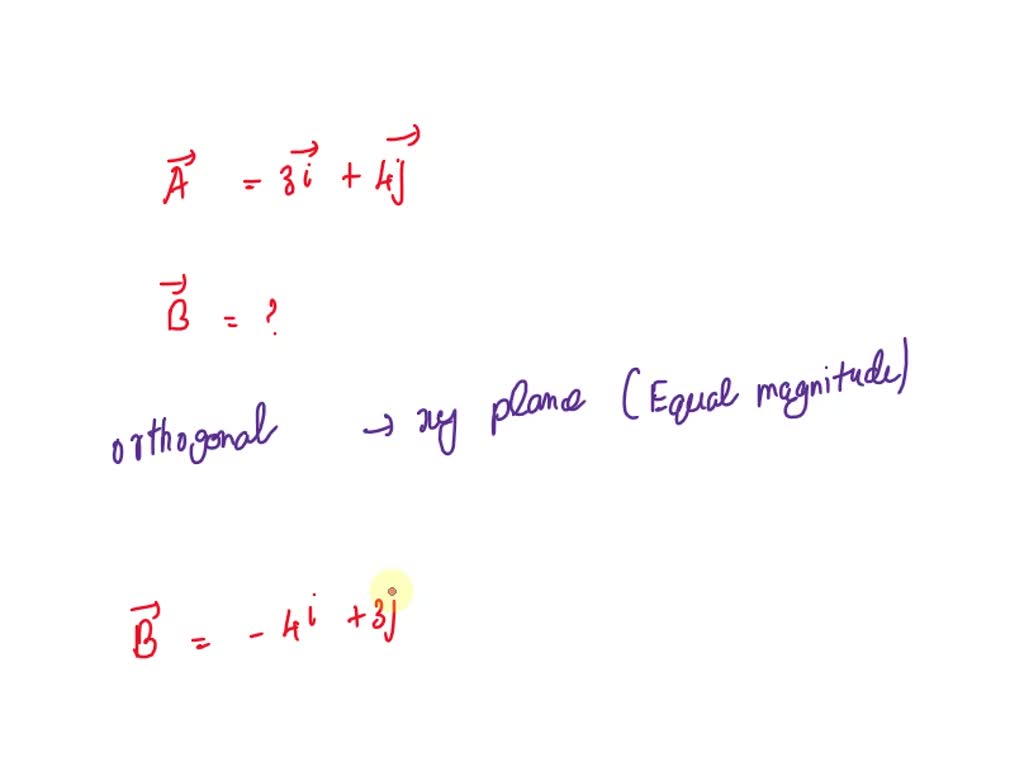 A⃗ = 3i⃗ + 4j⃗
B⃗ = ?
orthogonal → xy plane (Equal magnitude)
B⃗ = - 4i + 3j